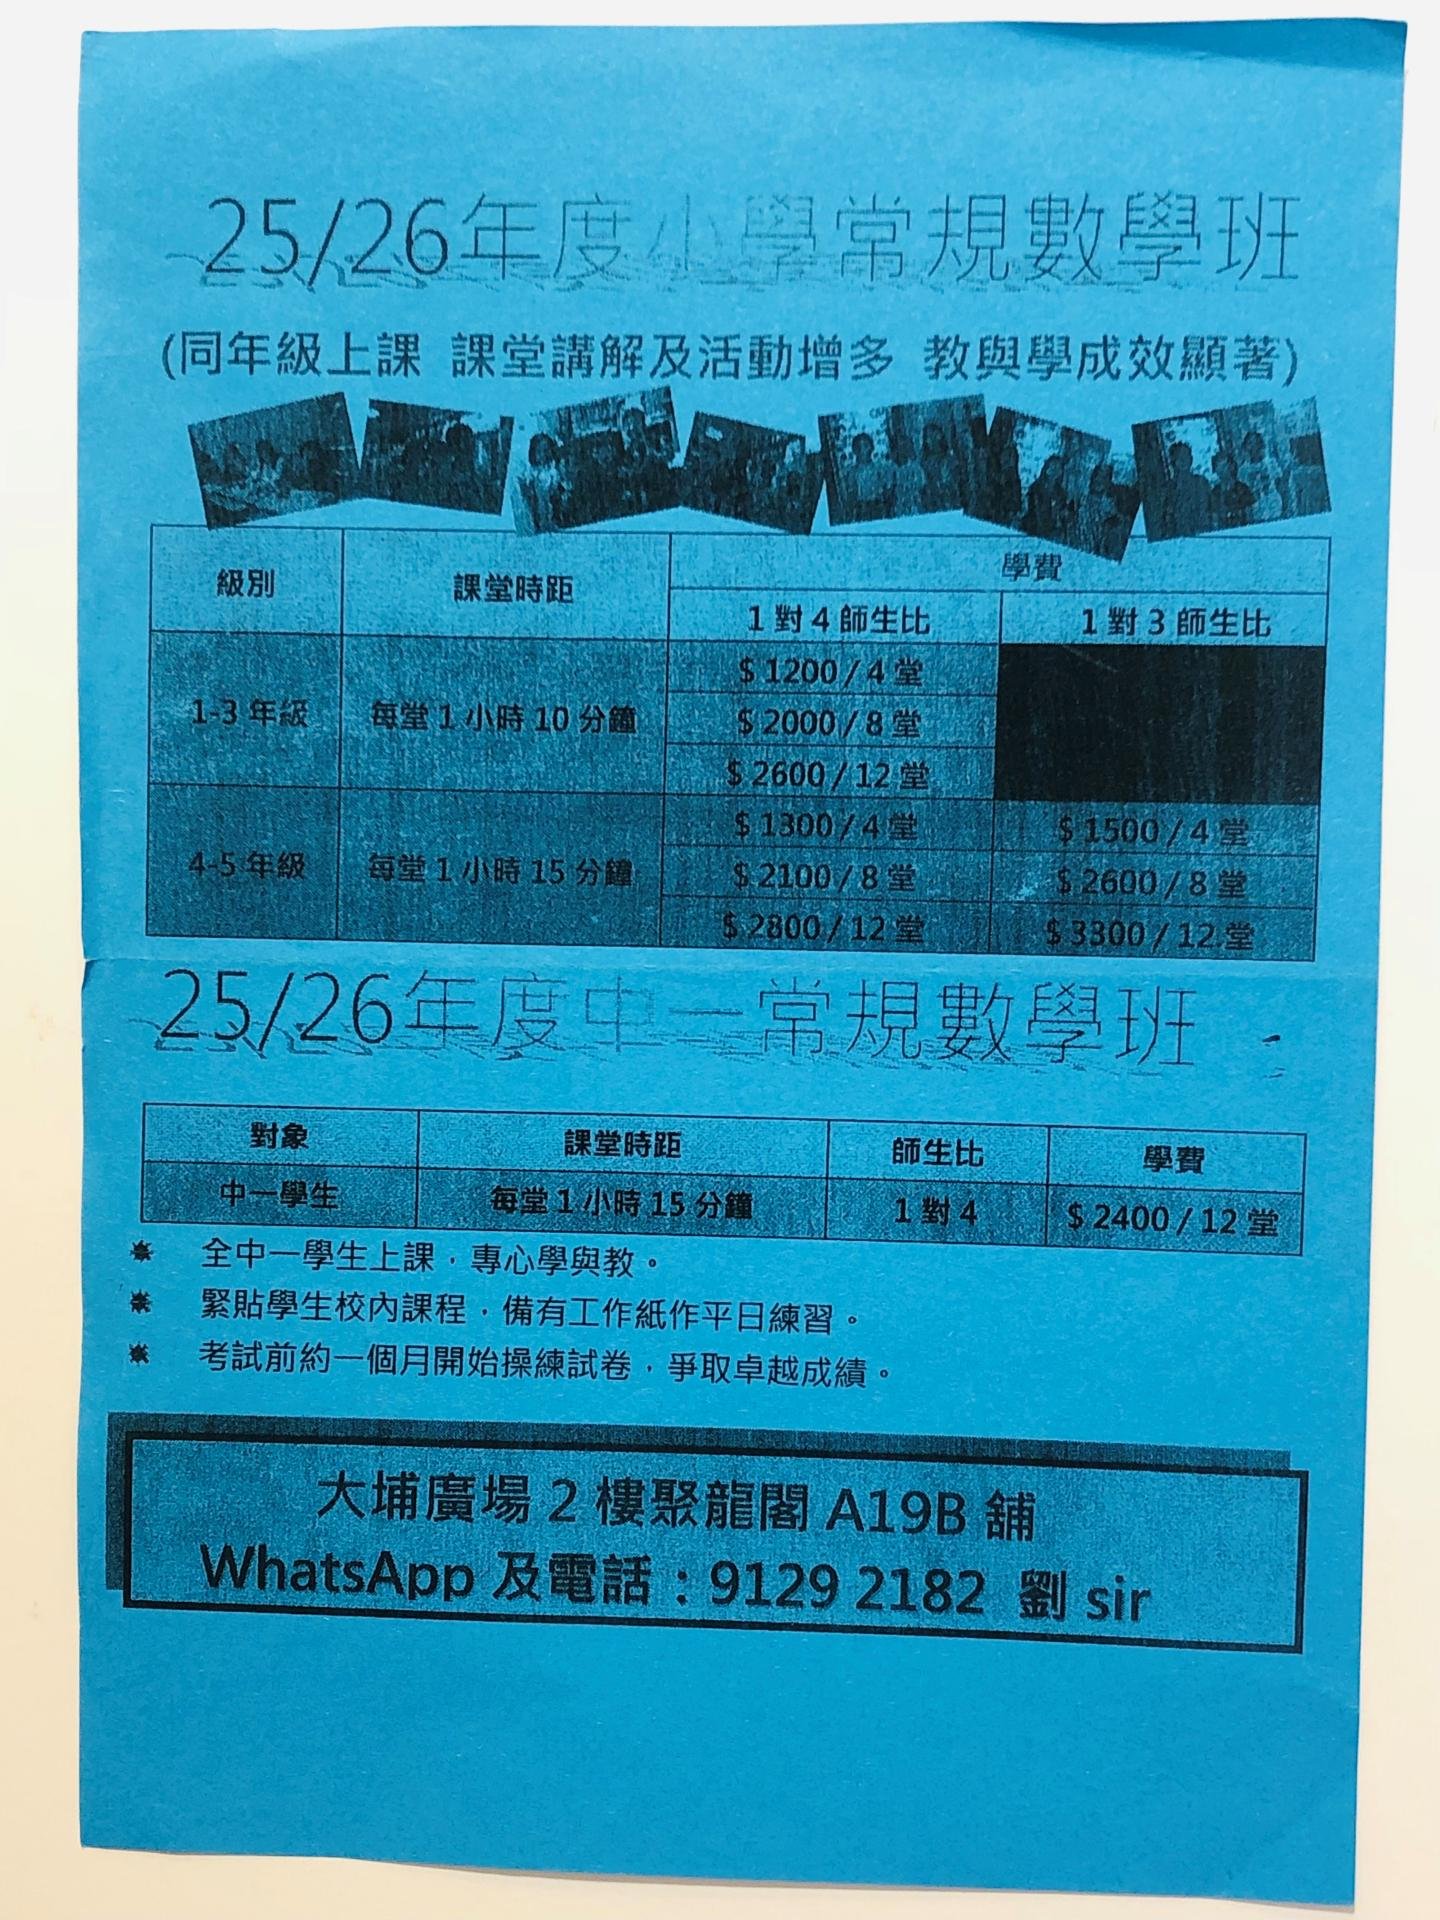 25/26年度小學常規數學班
(同年級上課 課堂講解及活動增多 教與學成效顯著)
級別 課堂時距 學費
1 對 4 師生比 1 對 3 師生比
1-3 年級 每堂 1 小時 10 分鐘
$ 1200 / 4 堂
$ 2000 / 8 堂
$ 2600 / 12 堂
4-5 年級 每堂 1 小時 15 分鐘
$ 1300 / 4 堂 $ 1500 / 4 堂
$ 2100 / 8 堂 $ 2600 / 8 堂
$ 2800 / 12 堂 $ 3300 / 12 堂
25/26年度中一常規數學班
對象 課堂時距 師生比 學費
中一學生 每堂 1 小時 15 分鐘 1 對 4 $ 2400 / 12 堂
全中一學生上課，專心學與教。
緊貼學生校內課程，備有工作紙作平日練習。
考試前約一個月開始操練試卷，爭取卓越成績。
大埔廣場 2 樓聚龍閣 A19B 舖
WhatsApp 及電話：9129 2182 劉 sir